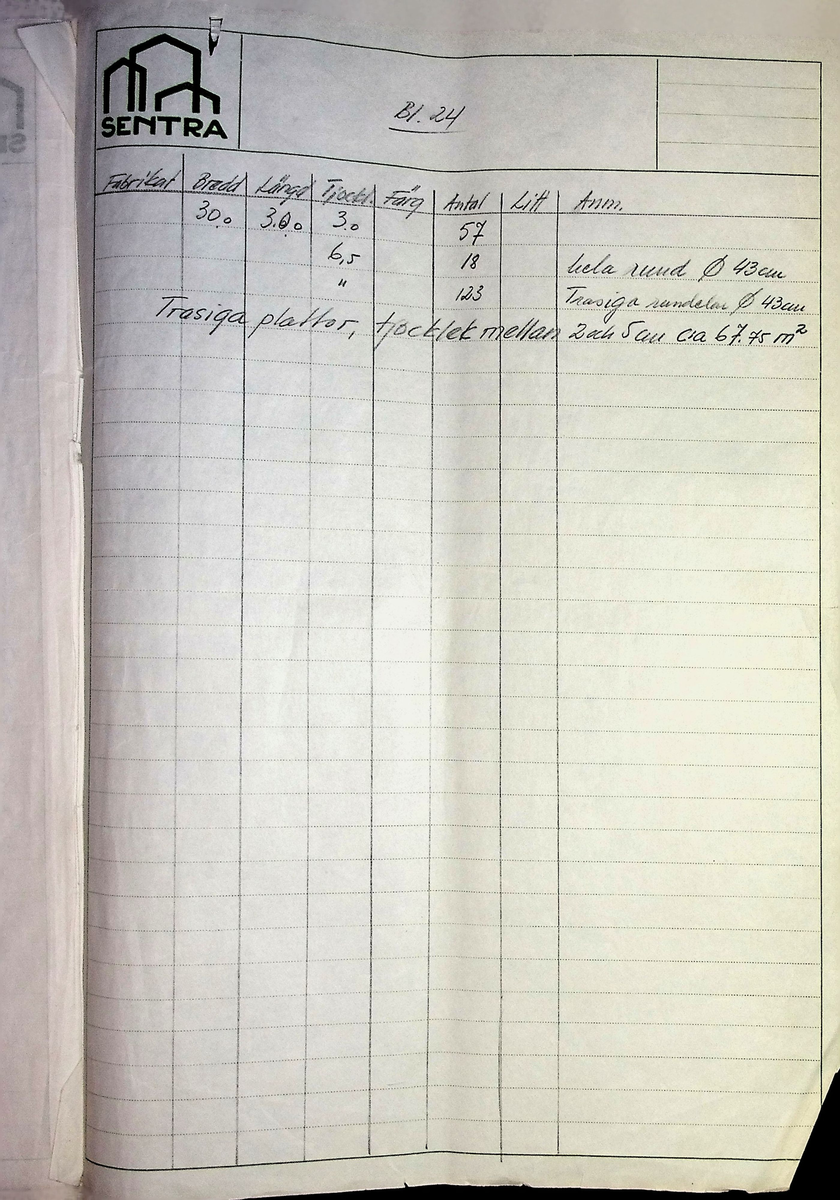 SENTRA
Bl. 24
Fabrikat Bredd Längd Tjockl. Färg Antal Litt Anm.
30.0 30.0 3.0 57
6,5 18 hela rund Ø 43cm
" 123 Trasiga rundelar Ø 43cm
Trasiga plattor, tjocklek mellan 2 och 5 cm ca 67.75 m²